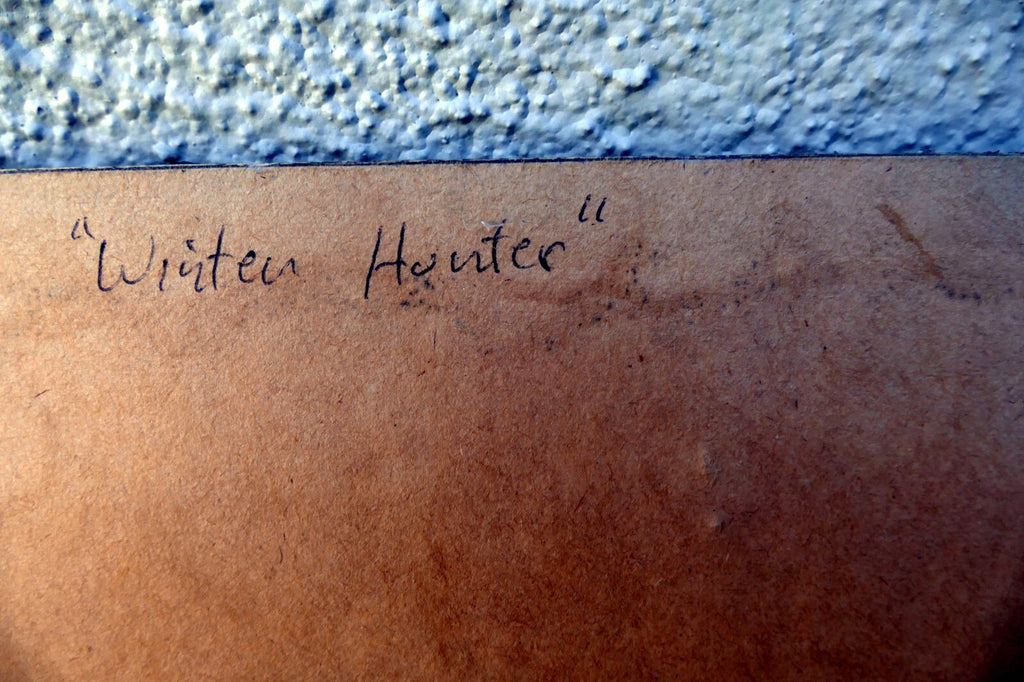 "Winter Hunter"